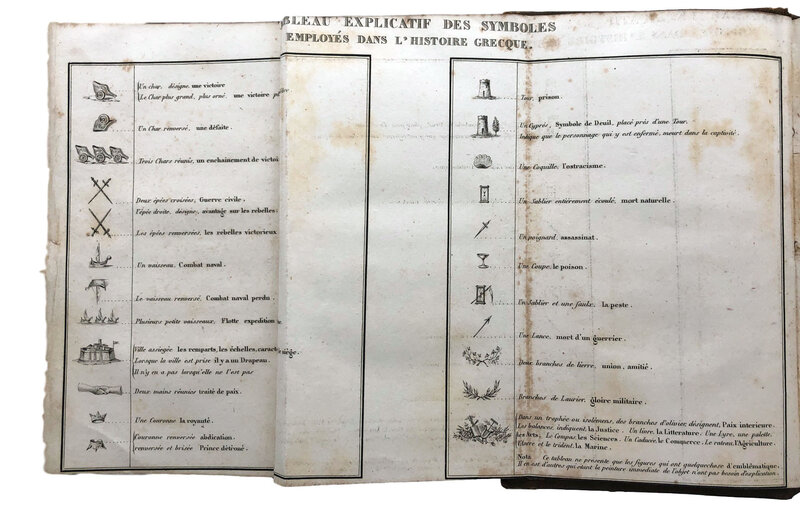 BLEAU EXPLICATIF DES SYMBOLES
EMPLOYÉS DANS L'HISTOIRE GRECQUE.
Un char, désigne, une victoire
Le Char plus grand, plus orné, une victoire
Un Char renversé, une défaite.
Trois Chars réunis, un enchainement de victoi
Deux épées croisées, Guerre civile.
l'épée droite, désigne, avantage sur les rebelles
Les épées renversées, les rebelles victorieux
Un vaisseau, Combat naval.
Le vaisseau renversé, Combat naval perdu.
Plusieurs petits vaisseaux, Flotte expedition
Ville assiegée les remparts, les échelles, caracté
siège.
Lorsque la ville est prise il y a un Drapeau.
Il n'y en a pas lorsqu'elle ne l'est pas
Deux mains réunies traité de paix.
Une Couronne la royauté.
Couronne renversée abdication.
renversée et brisée Prince détroné.
Tour, prison.
Un Cyprès, Symbole de Deuil, placé près d'une Tour,
indique que le personnage qui y est enfermé, meurt dans la captivité.
Une Coquille, l'ostracisme.
Un Sablier entièrement écoulé, mort naturelle.
Un poignard, assassinat.
Une Coupe, le poison.
Un Sablier et une faulx, la peste.
Une Lance, mort d'un guerrier.
Deux branches de lierre, union, amitié.
Branches de Laurier, gloire militaire.
Dans un trophée ou isolémens, des branches d'olivier, désignent, Paix interieure.
Les balances, indiquent, la Justice. Un livre, la Litterature. Une Lyre, une palette,
les Arts. Le Compas, les Sciences. Un Caducée, le Commerce. Le rateau, l'Agriculture
et le trident, la Marine.
Nota Ce tableau ne présente que les figures qui ont quelquechose d'emblématique.
Il en est d'autres qui étant la peinture immediate de l'objet n'ont pas besoin d'explication.